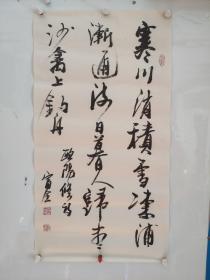 寒川消積雪凍浦
漸通流日暮人歸尽
沙禽上釣舟
歐陽修詩